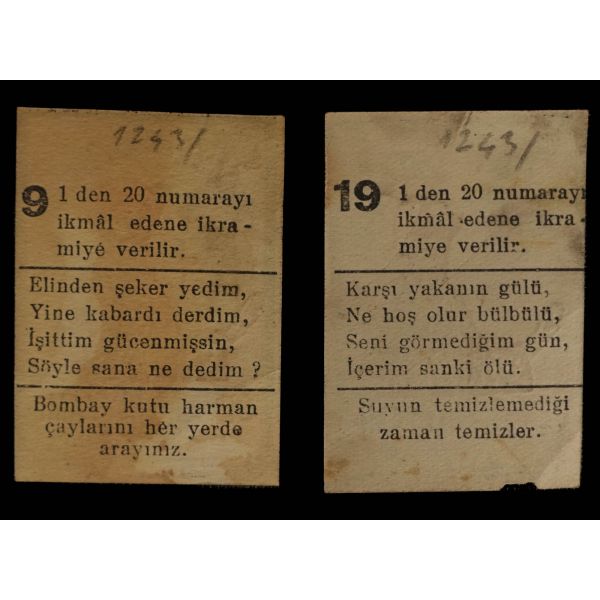 1243/
9
1 den 20 numarayı
ikmâl edene ikra-
miye verilir.
Elinden şeker yedim,
Yine kabardı derdim,
İşittim gücenmişsin,
Söyle sana ne dedim ?
Bombay kutu harman
çaylarını her yerde
arayınız.
1243/
19
1 den 20 numarayı
ikmâl edene ikra-
miye verilir.
Karşı yakanın gülü,
Ne hoş olur bülbülü,
Seni görmediğim gün,
İçerim sanki ölü.
Suyun temizlemediği
zaman temizler.